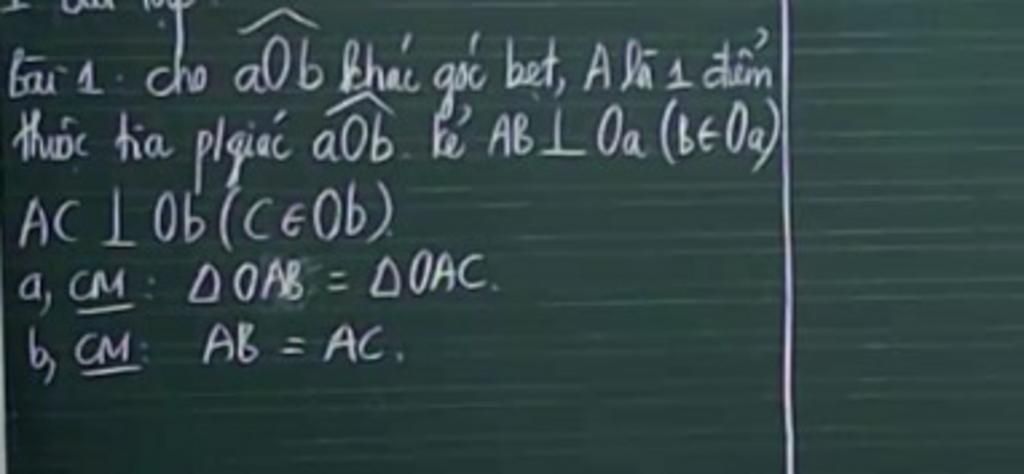 Bài 1: cho aOb khác góc bẹt, A là 1 điểm
thuộc tia p/giác aOb. kẻ AB ⊥ Oa (B∈Oa)
AC ⊥ Ob (C∈Ob).
a, CM: Δ OAB = Δ OAC.
b, CM: AB = AC.